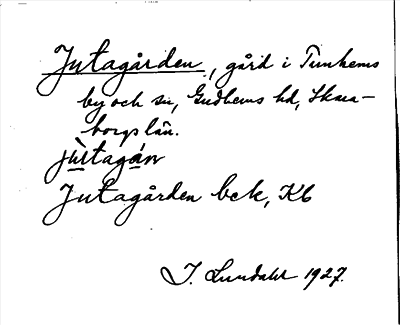 Jutagården, gård i Tunhems
by och sn, Gudhems hd, Skara-
borgs län.
jùtagán
Jutagården bck, Kb
I. Lundahl 1927.